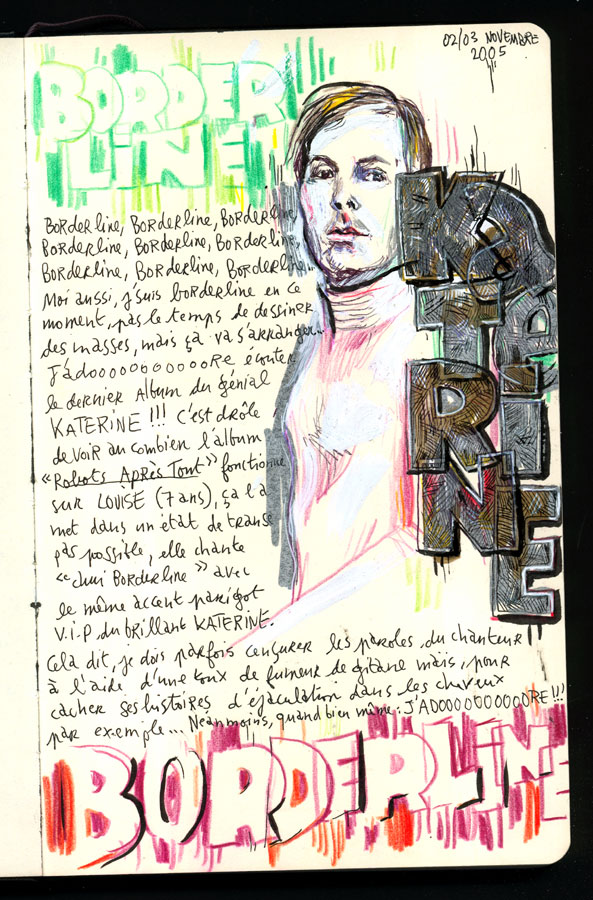 02/03 NOVEMBRE
2005
BORDER
LINE
KATERINE
Borderline, Borderline, Borderline,
Borderline, Borderline, Borderline,
Borderline, Borderline, Borderline...
Moi aussi, j'suis borderline en ce
moment, pas le temps de dessiner
des masses, mais ça va s'arranger...
J'adooooooooooRe écouter
le dernier Album du génial
KATERINE !!! C'est drôle
de voir au combien l'album
"Robots Après Tout" fonctionne
sur LOUISE (7 ans), ça l'a
met dans un état de transe
pas possible, elle chante
"chui Borderline" avec
le même accent parigot
V.i.P du brillant KATERINE.
Cela dit, je dois parfois censurer les paroles du chanteur
à l'aide d'une toux de fumeur de gitane maïs, pour
cacher ses histoires d'éjaculation dans les cheveux
par exemple... Neanmoins, quand bien même: J'ADOOOOOOOOOORE !!!
BORDERLINE